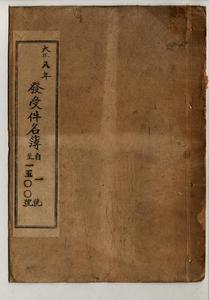 大正五年
發受件名簿
自一號
至一五〇〇號